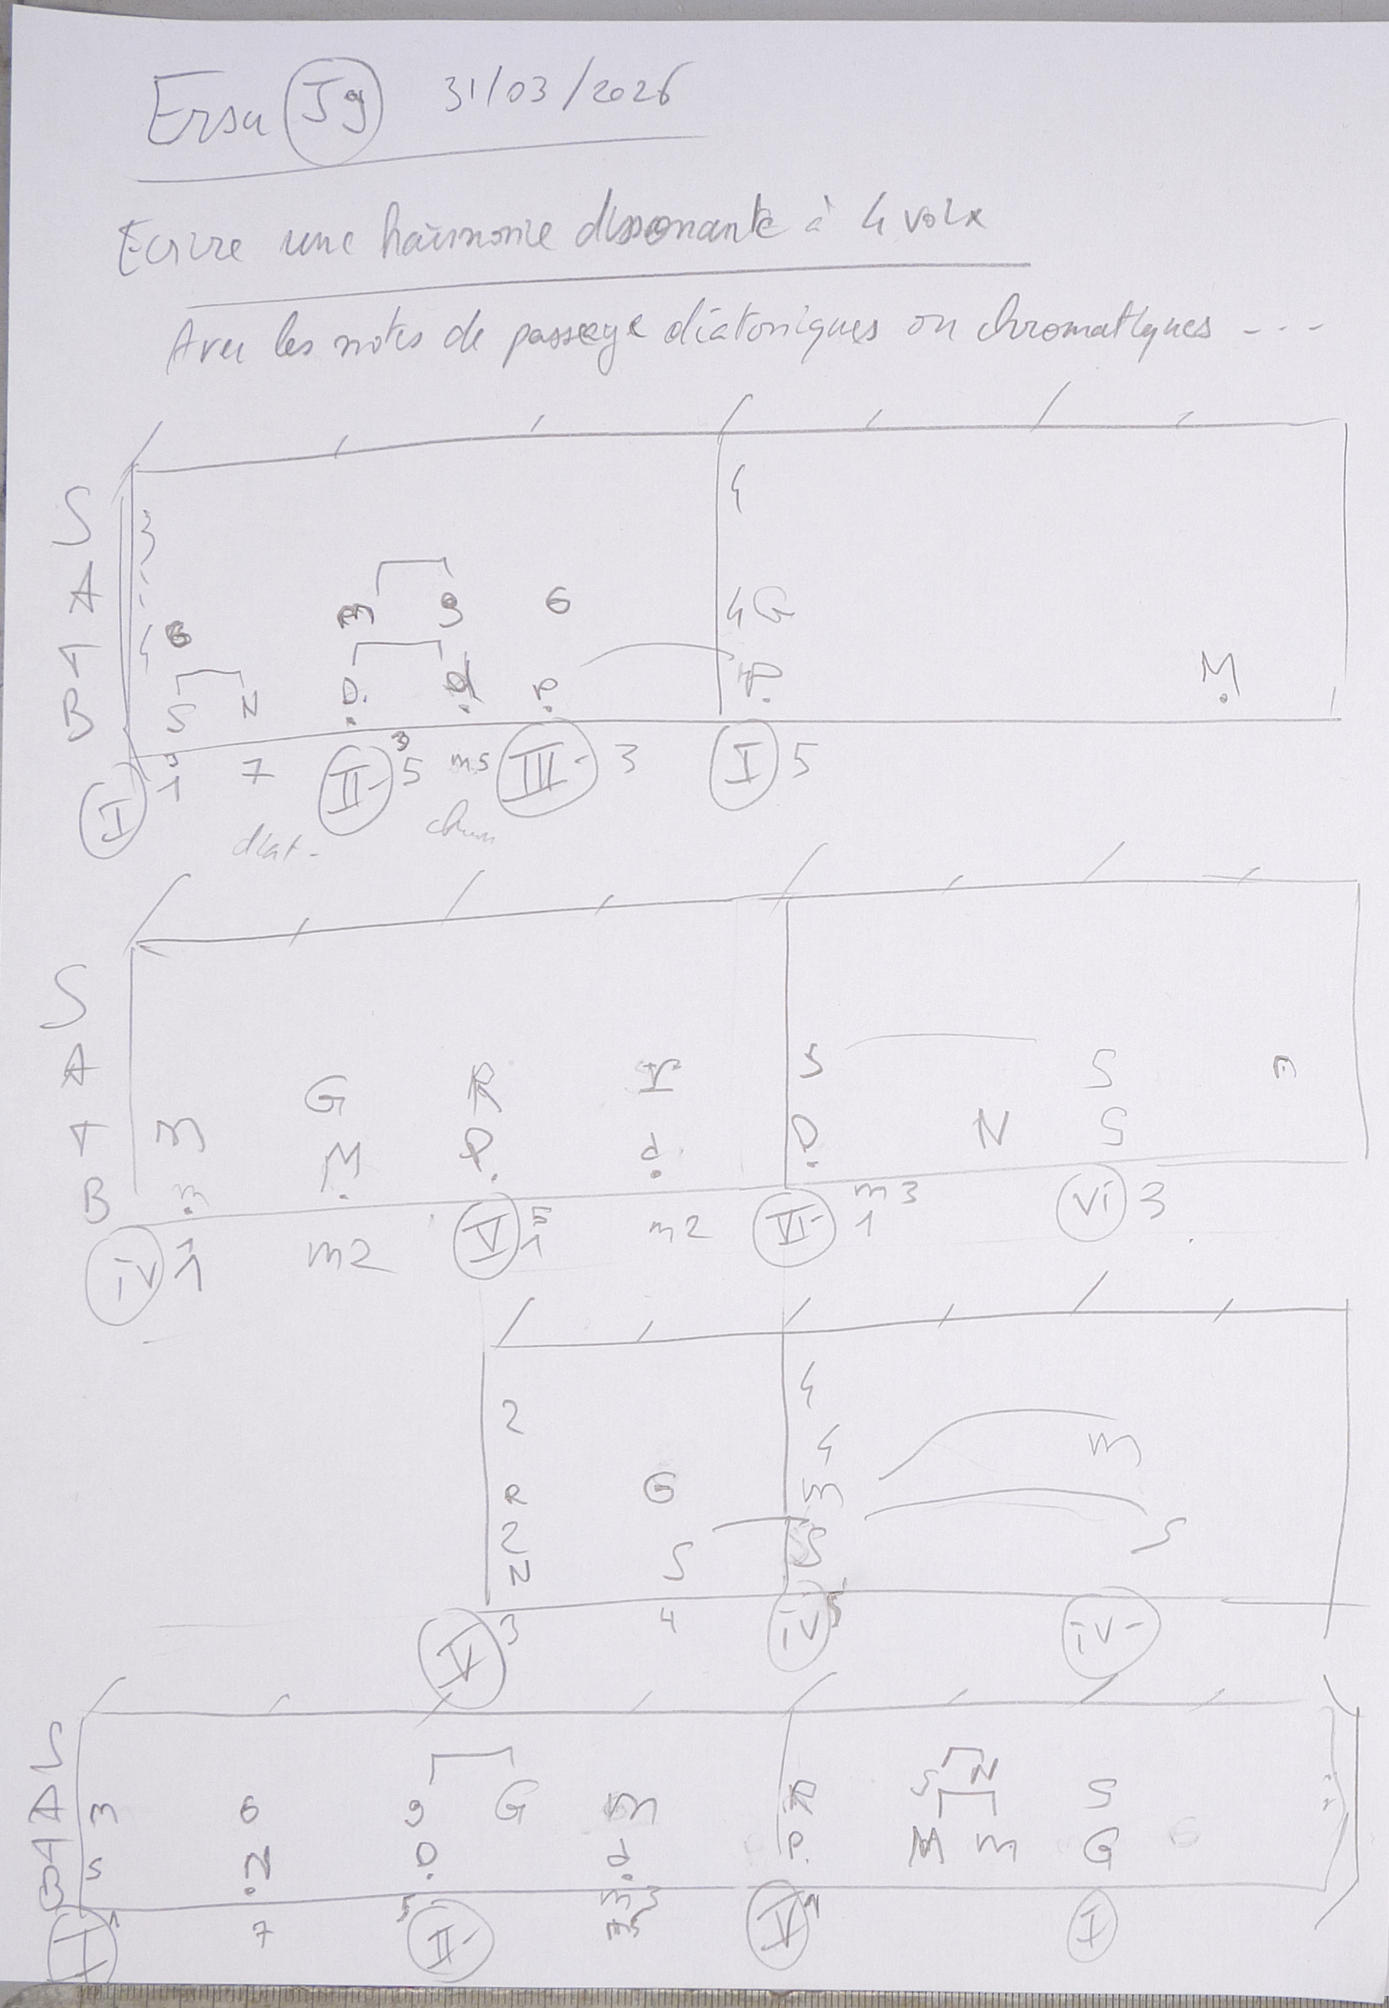 Ersa Jg 31/03/2026
Ecrire une harmonie dissonante à 4 voix
Avec les notes de passage diatoniques ou chromatiques - - -
S 3 4
A m g G 4 G
T 4 G
B S N D. d P. P. M
I 1 7 II- 3 5 m5 III- 3 I 5
diat- chrom
S
A G R r S S m
T m M P. d D N S
B m
iv 1 m2 V 5 1 m2 VI- m3 1 vi 3
2 4
R G 4 m
2 m
N S S S
V 3 4 iv 5 iv-
S S N
A m G g G m R S
T S N D. d P. M m G
B
I 1 7 5 II- V I